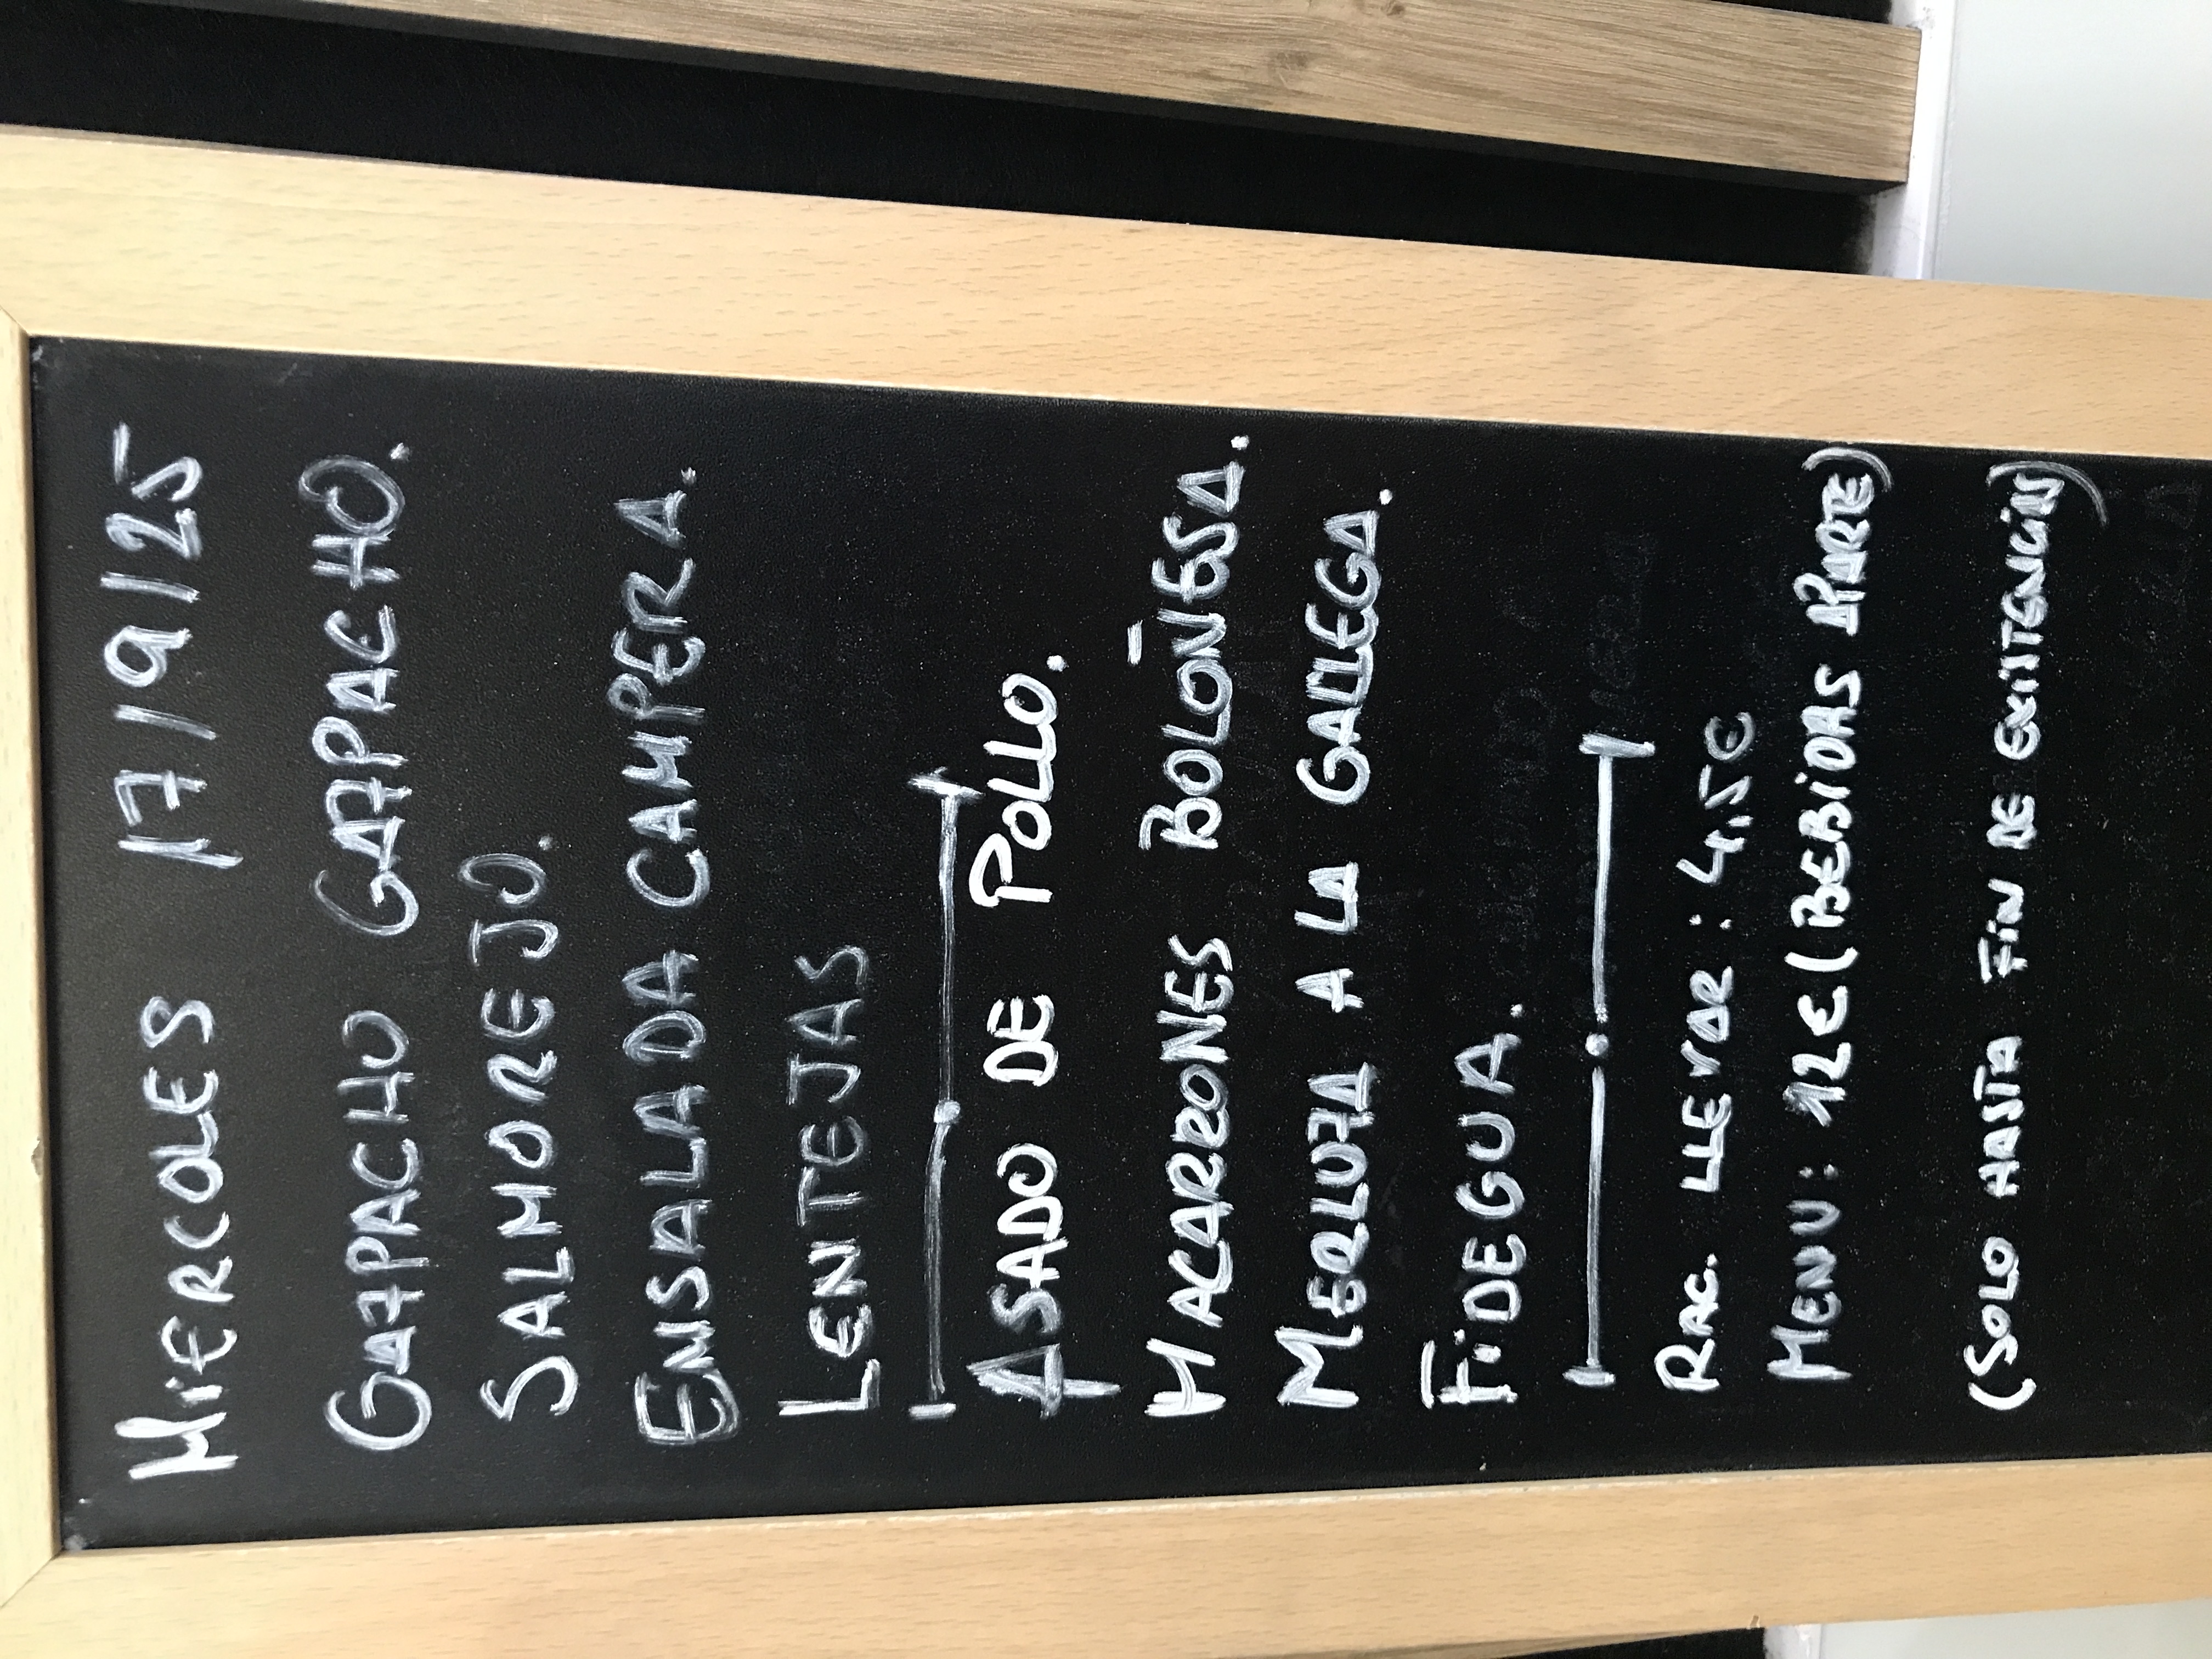 MIERCOLES 17/9/25
GAZPACHO GAZPACHO.
SALMOREJO.
ENSALADA CAMPERA.
LENTEJAS
ASADO DE POLLO.
MACARRONES BOLOÑESA.
MERLUZA A LA GALLEGA.
FIDEGUA.
RAC. LLEVAR: 4,5€
MENU: 12€ (BEBIDAS APARTE)
(SOLO HASTA FIN DE